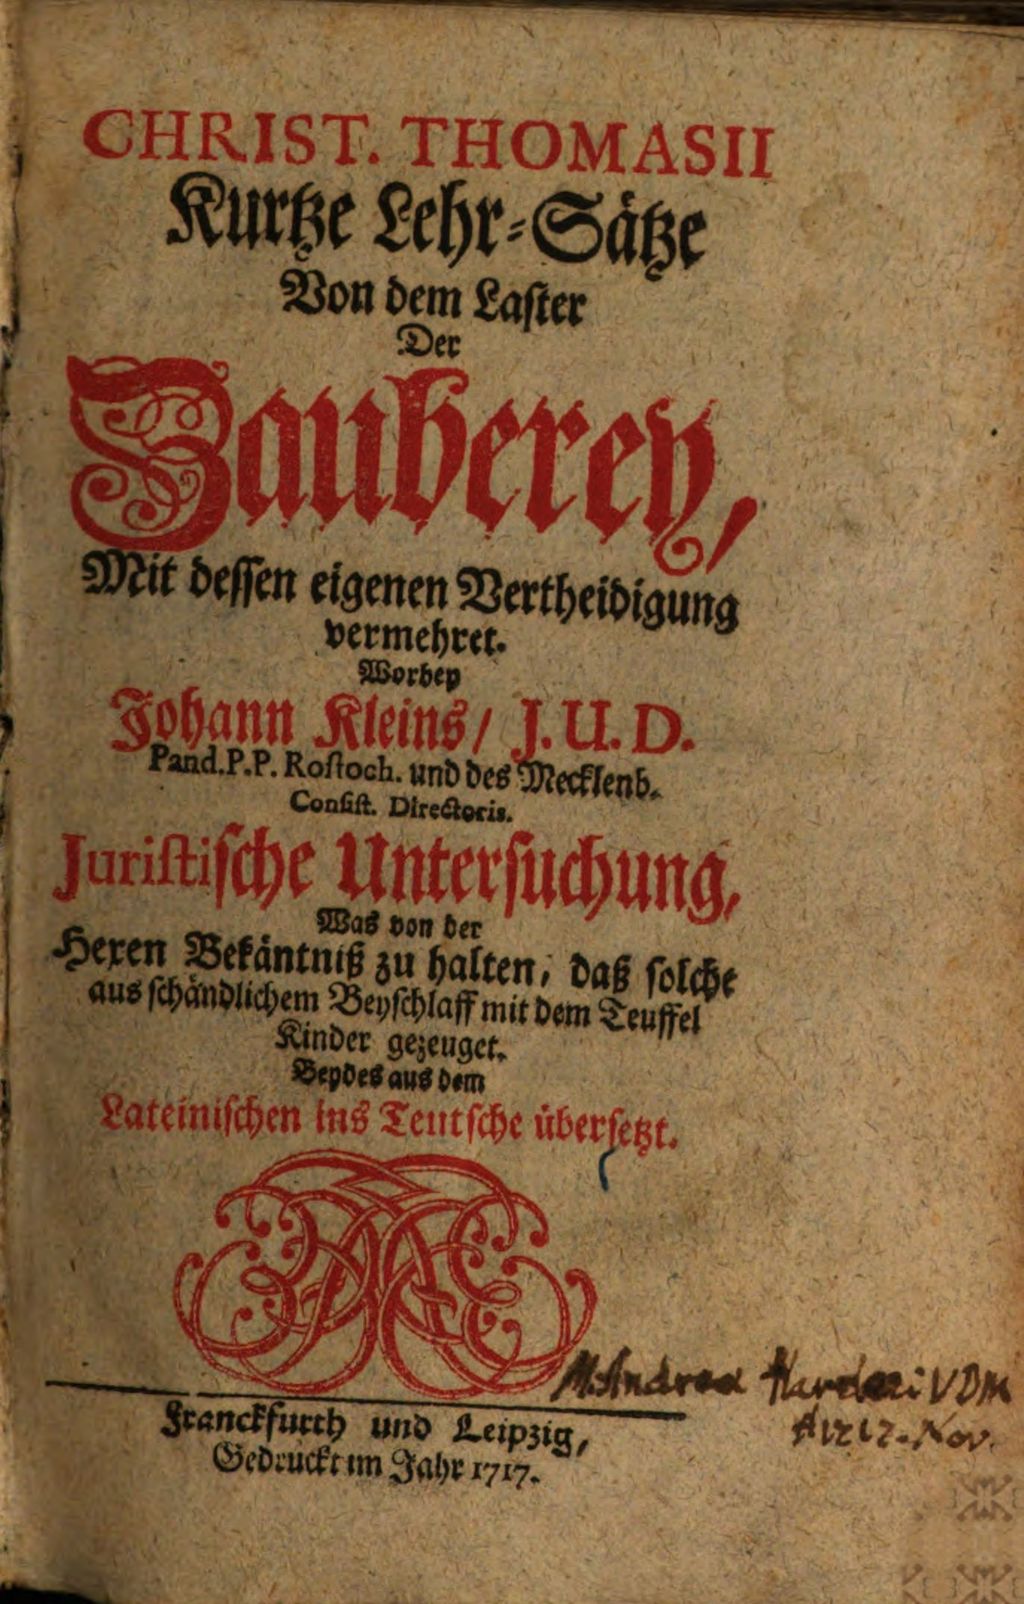 CHRIST. THOMASII
Kurtze Lehr-Sätze
Von dem Laster
Der
Zauberey,
Mit dessen eigenen Vertheidigung
vermehret.
Worbey
Johann Kleins/ J.U.D.
Pand.P.P. Rostoch. und des Mecklenb.
Consist. Directoris.
Juristische Untersuchung,
Was von der
Hexen Bekäntniß zu halten, daß solche
aus schändlichem Beyschlaff mit dem Teuffel
Kinder gezeuget.
Beydes aus dem
Lateinischen ins Teutsche übersetzt.
M. Andreae Harderi VDM
1717. Nov.
Franckfurth und Leipzig,
Gedruckt im Jahr 1717.